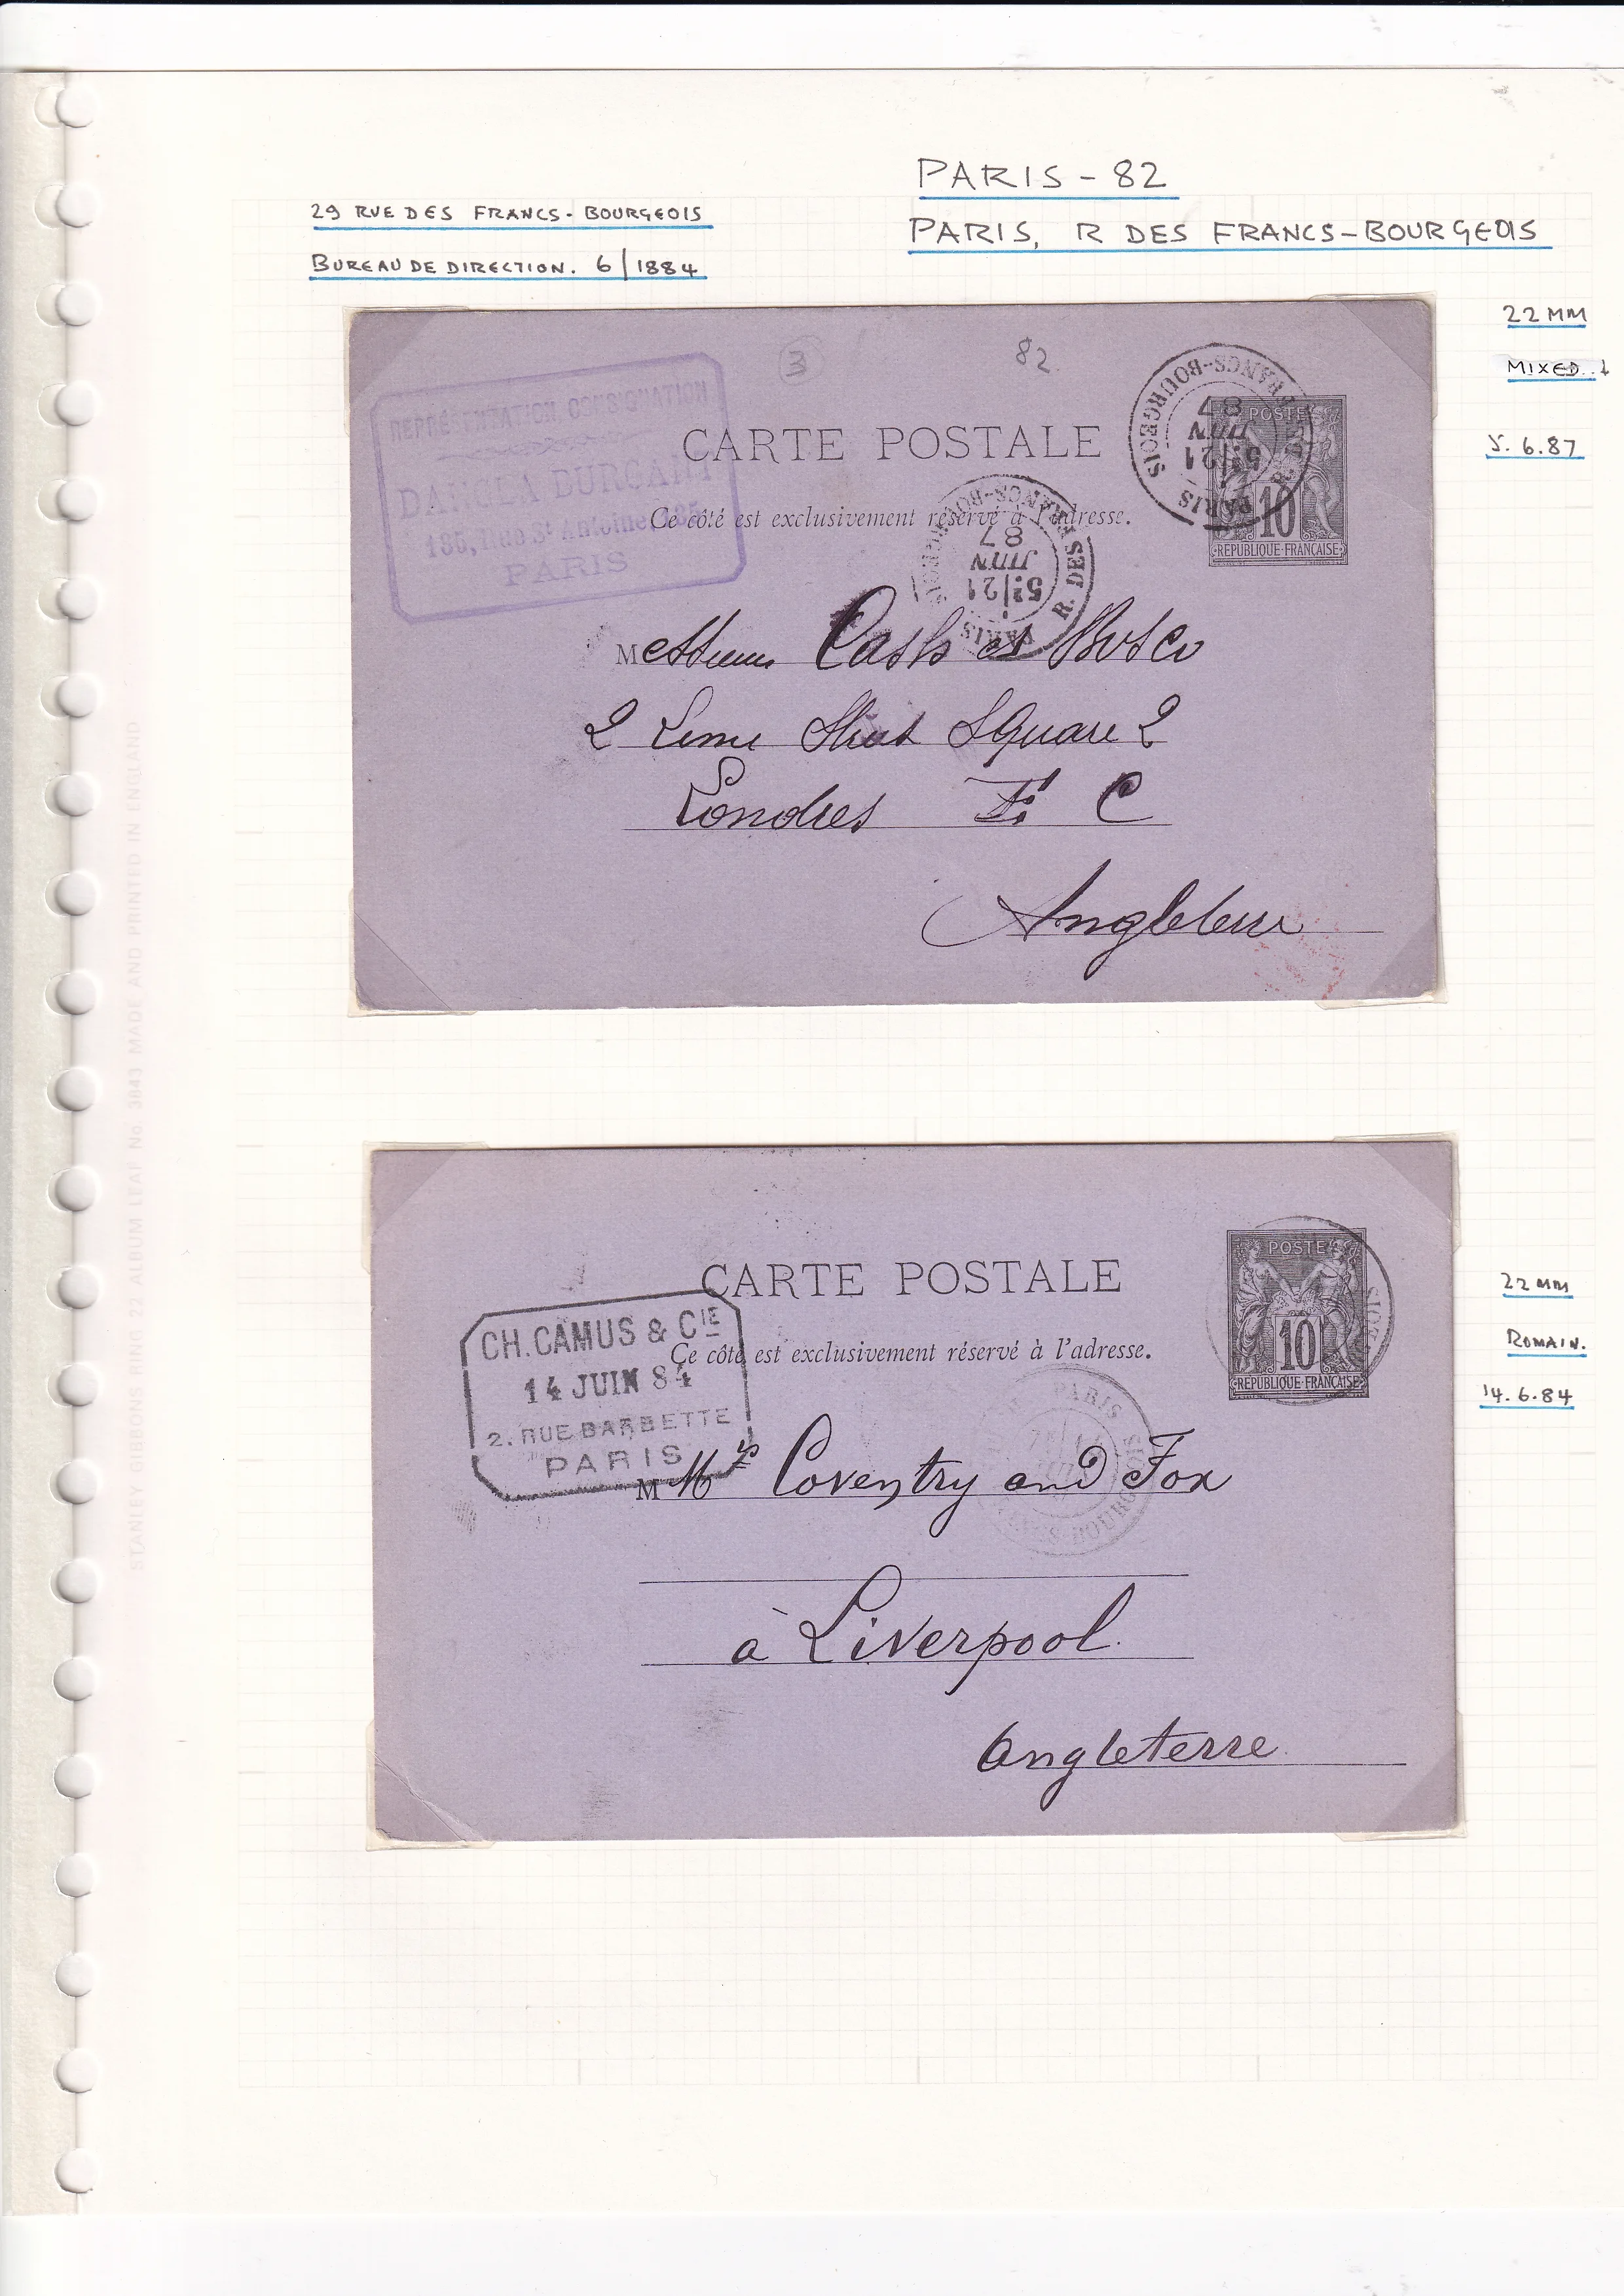 PARIS - 82
29 RUE DES FRANCS - BOURGEOIS
PARIS, R DES FRANCS - BOURGEOIS
BUREAU DE DIRECTION. 6/1884
22 MM
MIXED.
5.6.87
3
82
REPRÉSENTATION, CONSIGNATION
185, Rue St Antoine, 185
PARIS
CARTE POSTALE
Ce côté est exclusivement réservé à l'adresse.
PARIS R. DES FRANCS-BOURGEOIS
5E/21
JUIN
87
PARIS R. DES FRANCS-BOURGEOIS
5E/21
JUIN
87
POSTES
10
REPUBLIQUE FRANÇAISE
Messieurs Cash et
2 Lime Street Square 2
Londres E. C
Angleterre
22 MM
ROMAIN.
14.6.84
CARTE POSTALE
Ce côté est exclusivement réservé à l'adresse.
POSTES
10
REPUBLIQUE FRANÇAISE
CH. CAMUS & CIE
14 JUIN 84
2. RUE BARBETTE
PARIS
PARIS
BOURGEOIS
M Mrs Coventry and Fox
à Liverpool.
Angleterre
STANLEY GIBBONS RING 22 ALBUM LEAF No. 3843 MADE AND PRINTED IN ENGLAND